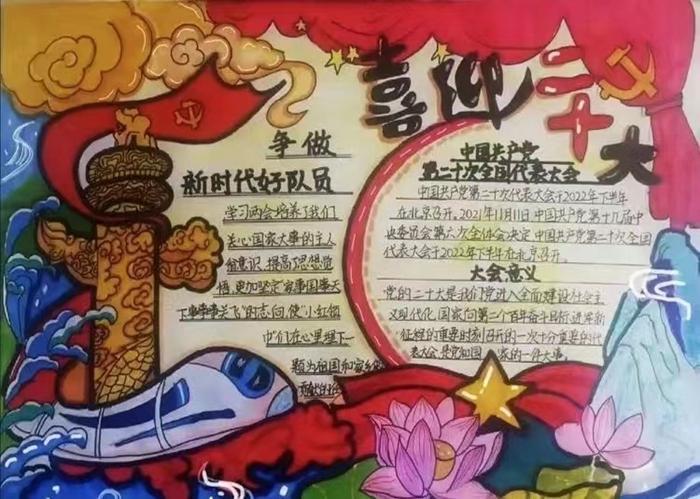 喜迎二十大
争做
新时代好队员
学习两会培养了我们
关心国家大事的主人
翁意识,提高了思想觉
悟,更加坚定"家事国事天
下事事事关飞"的志向,使"小红领
巾"们在心里埋下一
题为祖国和家乡
贡献的
中国共产党
第二十次全国代表大会
中国共产党第二十次代表大会于2022年下半年
在北京召开。2021年11月11日中国共产党第十九届中
央委员会第六次全体会决定中国共产党第二十次全国
代表大会于2022年下半年在北京召开。
大会意义
党的二十大是我们党进入全面建设社会主
义现代化国家向第二个百年奋斗目标进军新
征程的重要时刻召开的一次十分重要的代
表大会,是党和国家的一件大事。